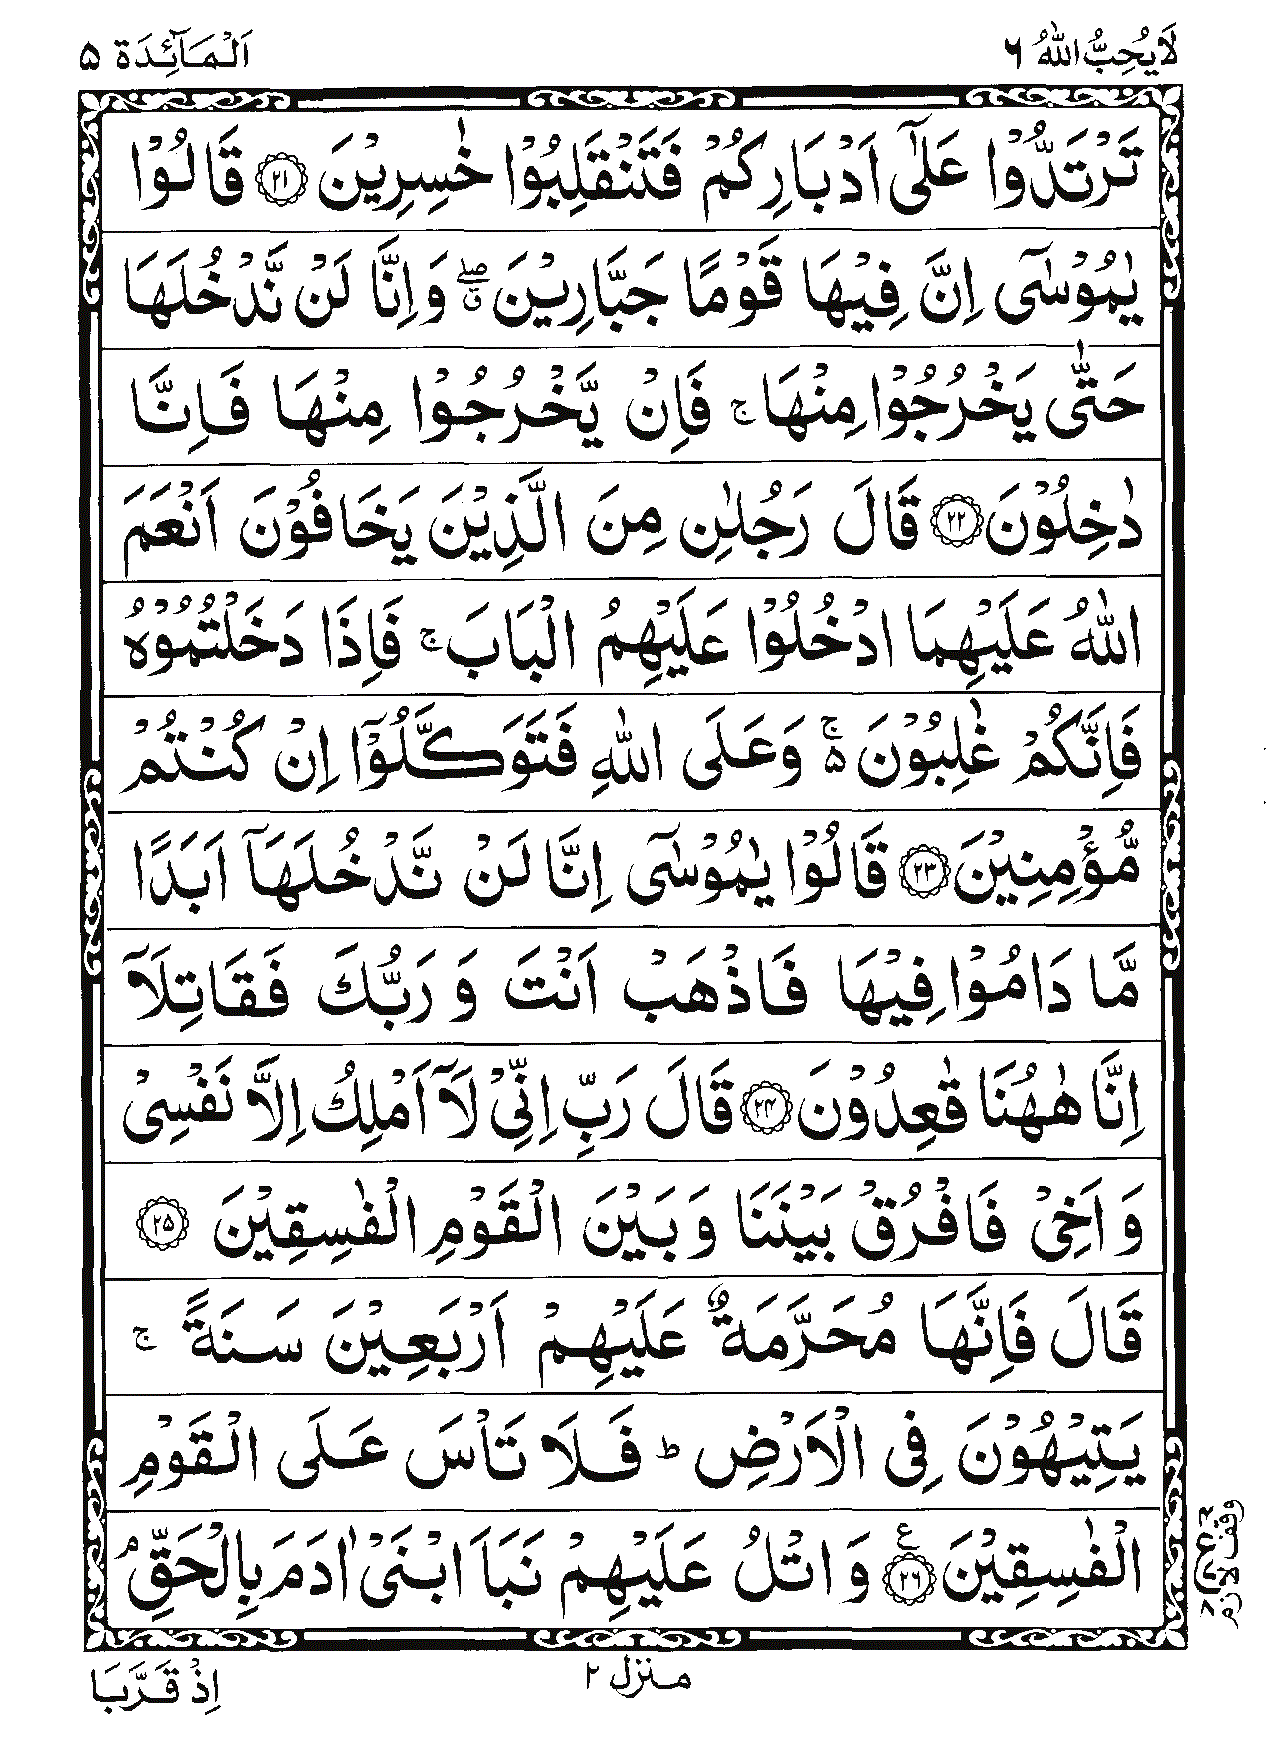 لَا يُحِبُّ اللّٰهُ ٦
اَلْمَآئِدَة ٥
تَرْتَدُّوْا عَلٰٓى اَدْبَارِكُمْ فَتَنْقَلِبُوْا خٰسِرِيْنَ ٢١ قَالُوْا
يٰمُوْسٰٓى اِنَّ فِيْهَا قَوْمًا جَبَّارِيْنَ ۖۗ وَاِنَّا لَنْ نَّدْخُلَهَا
حَتّٰى يَخْرُجُوْا مِنْهَا ۚ فَاِنْ يَّخْرُجُوْا مِنْهَا فَاِنَّا
دٰخِلُوْنَ ٢٢ قَالَ رَجُلٰنِ مِنَ الَّذِيْنَ يَخَافُوْنَ اَنْعَمَ
اللّٰهُ عَلَيْهِمَا ادْخُلُوْا عَلَيْهِمُ الْبَابَ ۚ فَاِذَا دَخَلْتُمُوْهُ
فَاِنَّكُمْ غٰلِبُوْنَ ۵ۚ وَعَلَى اللّٰهِ فَتَوَكَّلُوْٓا اِنْ كُنْتُمْ
مُّؤْمِنِيْنَ ٢٣ قَالُوْا يٰمُوْسٰٓى اِنَّا لَنْ نَّدْخُلَهَآ اَبَدًا
مَّا دَامُوْا فِيْهَا فَاذْهَبْ اَنْتَ وَ رَبُّكَ فَقَاتِلَآ
اِنَّا هٰهُنَا قٰعِدُوْنَ ٢٤ قَالَ رَبِّ اِنِّىْ لَآ اَمْلِكُ اِلَّا نَفْسِىْ
وَ اَخِىْ فَافْرُقْ بَيْنَنَا وَ بَيْنَ الْقَوْمِ الْفٰسِقِيْنَ ٢٥
قَالَ فَاِنَّهَا مُحَرَّمَةٌ عَلَيْهِمْ اَرْبَعِيْنَ سَنَةً ۚ
يَتِيْهُوْنَ فِى الْاَرْضِ ؕ فَلَا تَاْسَ عَلَى الْقَوْمِ
الْفٰسِقِيْنَ ٢٦ ع وَ اتْلُ عَلَيْهِمْ نَبَاَ ابْنَىْ اٰدَمَ بِالْحَقِّ ۘ
وقف لازم
منزل ٢
اِذْ قَرَّبَا